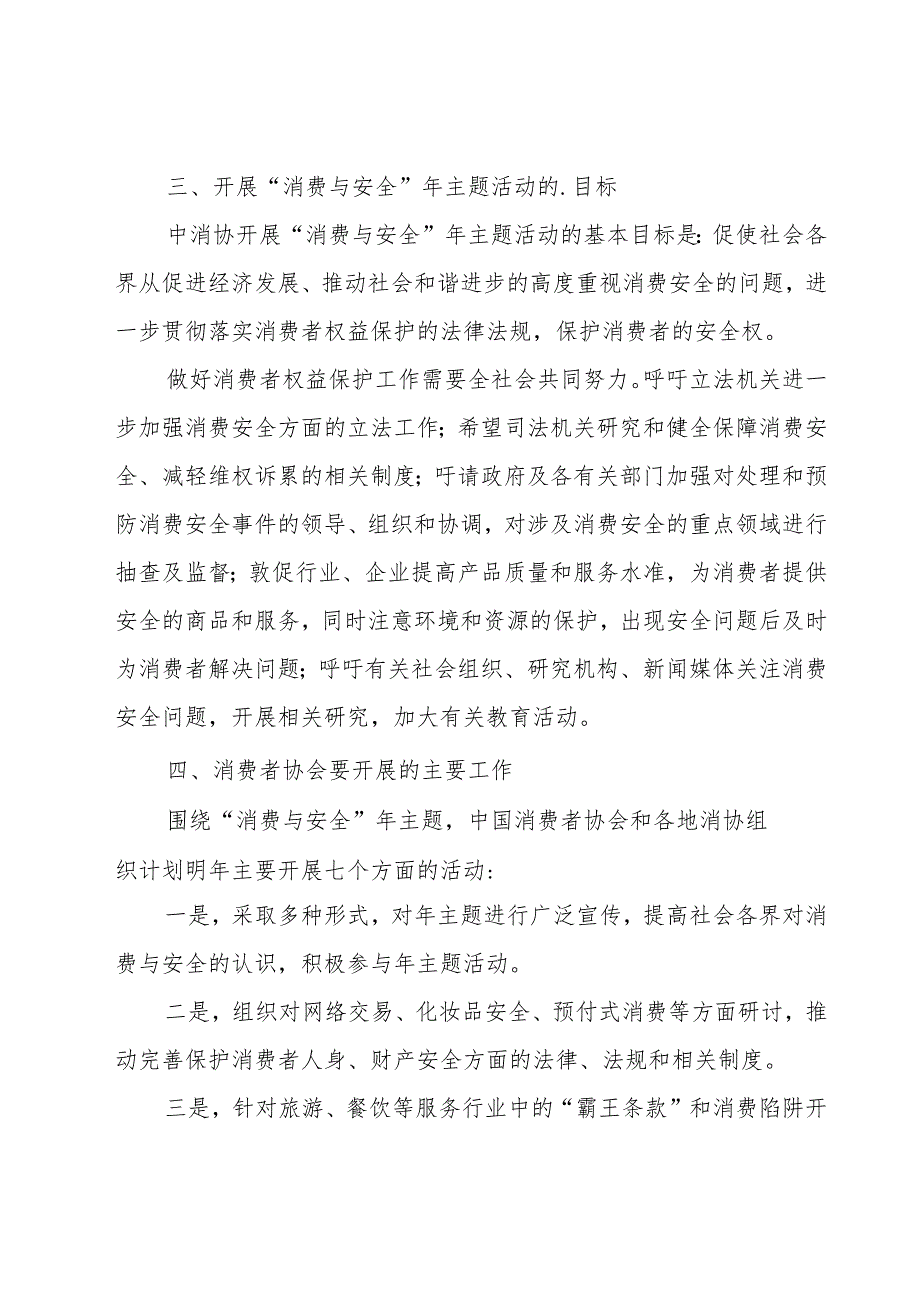 三、开展“消费与安全”年主题活动的.目标
中消协开展“消费与安全”年主题活动的基本目标是：促使社会各
界从促进经济发展、推动社会和谐进步的高度重视消费安全的问题，进
一步贯彻落实消费者权益保护的法律法规，保护消费者的安全权。
做好消费者权益保护工作需要全社会共同努力。呼吁立法机关进一
步加强消费安全方面的立法工作；希望司法机关研究和健全保障消费安
全、减轻维权诉累的相关制度；吁请政府及各有关部门加强对处理和预
防消费安全事件的领导、组织和协调，对涉及消费安全的重点领域进行
抽查及监督；敦促行业、企业提高产品质量和服务水准，为消费者提供
安全的商品和服务，同时注意环境和资源的保护，出现安全问题后及时
为消费者解决问题；呼吁有关社会组织、研究机构、新闻媒体关注消费
安全问题，开展相关研究，加大有关教育活动。
四、消费者协会要开展的主要工作
围绕“消费与安全”年主题，中国消费者协会和各地消协组
织计划明年主要开展七个方面的活动：
一是，采取多种形式，对年主题进行广泛宣传，提高社会各界对消
费与安全的认识，积极参与年主题活动。
二是，组织对网络交易、化妆品安全、预付式消费等方面研讨，推
动完善保护消费者人身、财产安全方面的法律、法规和相关制度。
三是，针对旅游、餐饮等服务行业中的“霸王条款”和消费陷阱开